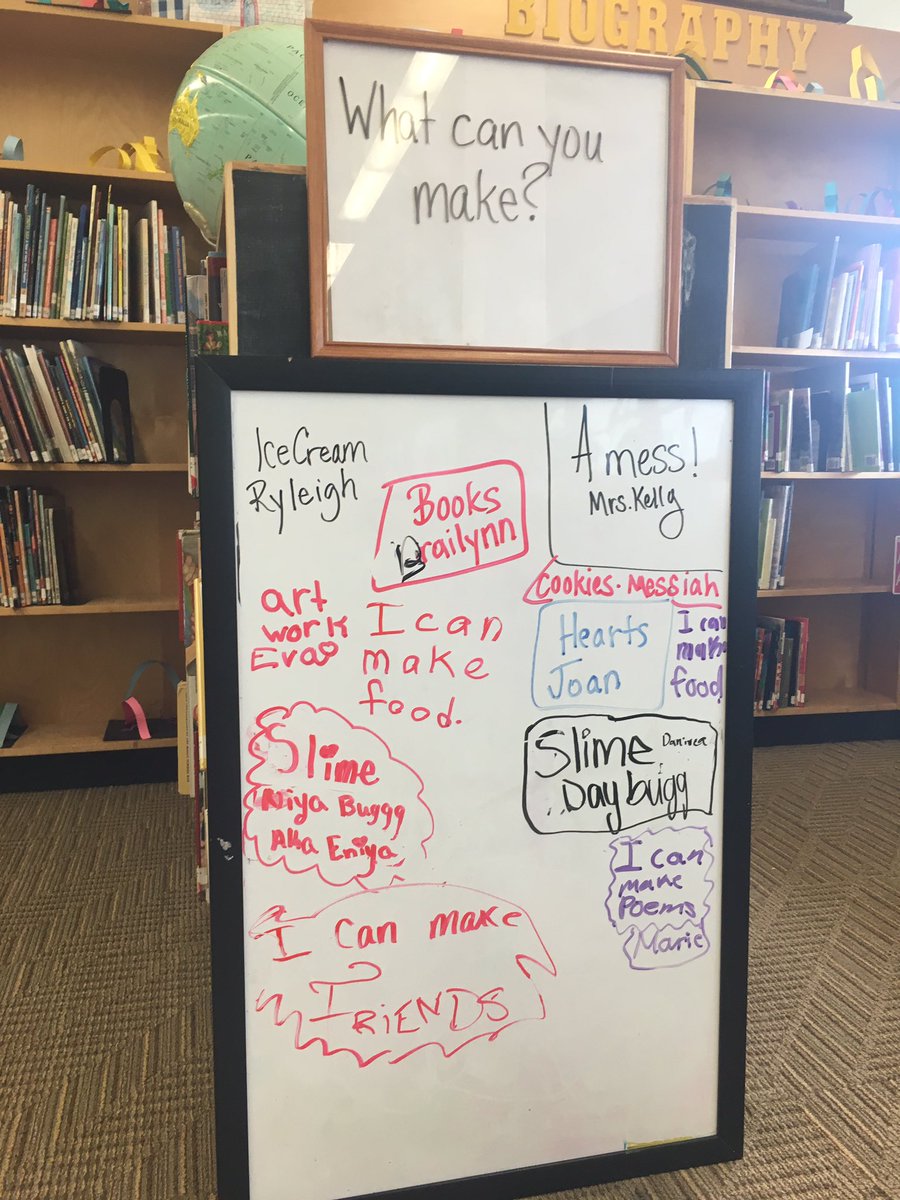 BIOGRAPHY
What can you
make?
IceCream
Ryleigh
Books
Brailynn
A mess!
Mrs. Kelly
Cookies. Messiah
art
work
Eva
I can
make
food.
Hearts
Joan
I can
make
food
Slime
Niya Buggg
Aka Eniya
Slime
Daybugg
I can
make
Poems
Marie
I can make
FRiENDS